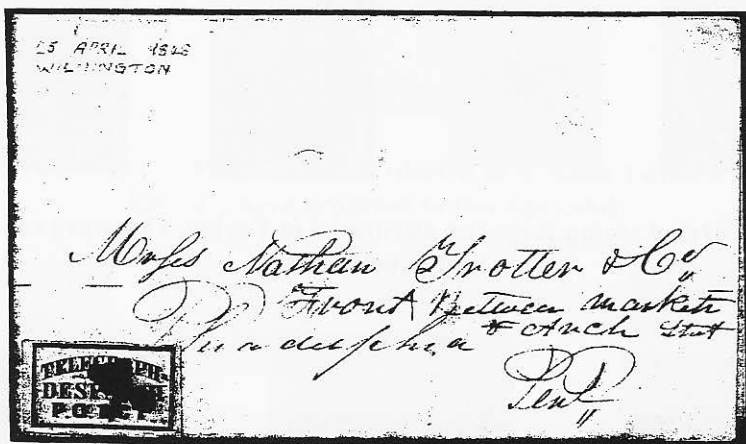 25 APRIL 1848
WILMINGTON
Messs Nathan Trotter & Co
Front Between market
& Arch Street
Philadelphia
Pena
TELEGRAPH
DESPATCH
P.O.